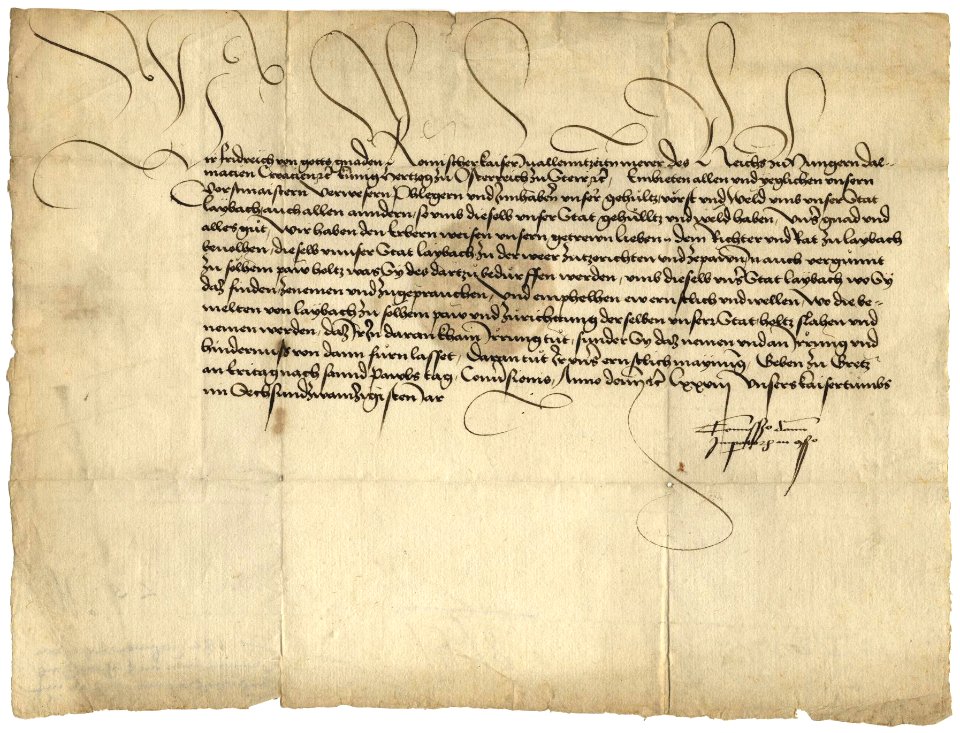 Wir Fridreich von gottes gnaden Romischer kaiser zuallenntzeitn merer des Reichs zu Hungern Dal-
matien Croatien zc kunig Hertzog zu Osterreich zu Steir zc Embieten allen und yeglichen unsern
Vorstmaistern Verwesern Phlegern und Innhabern unsrer gehultz vorst und Weld umb unser Stat
Laybach auch allen anndern so umb dieselb unser Stat gehulltz und weld haben unser gnad und
alles gut Wir haben den Erbern weisen unsern getrewn lieben dem Richter und Rat zu Laybach
bevolhen dieselb unnser Stat Laybach zu der weer zuzorichten und zepawen in auch vergunnt
zu solhem paw holtz was Sy des dartzu bedurffen werden umb dieselb unser Stat Laybach wo Sy
daz finden zenemen und zugeprauchen Und emphelhen ew ernstlich und wellen Wo die be-
melten von Laybach zu solhem paw und zurichttung derselben unsere Stat holtz slahen und
nemen werden daz Ir In daran khain Irrung tut sunder Sy daz nemen und an Irrung und
hindernuss von dann furn lasset Daran tut Ir unser ernstlich maynung Geben zu Gretz
an Eritag nach sannd Pawls tag Conversionis Anno domini zc lxxviii Unsers kaisertumbs
im Sechsundzwainzigisten Jar
Commissio domini
Imperatoris in